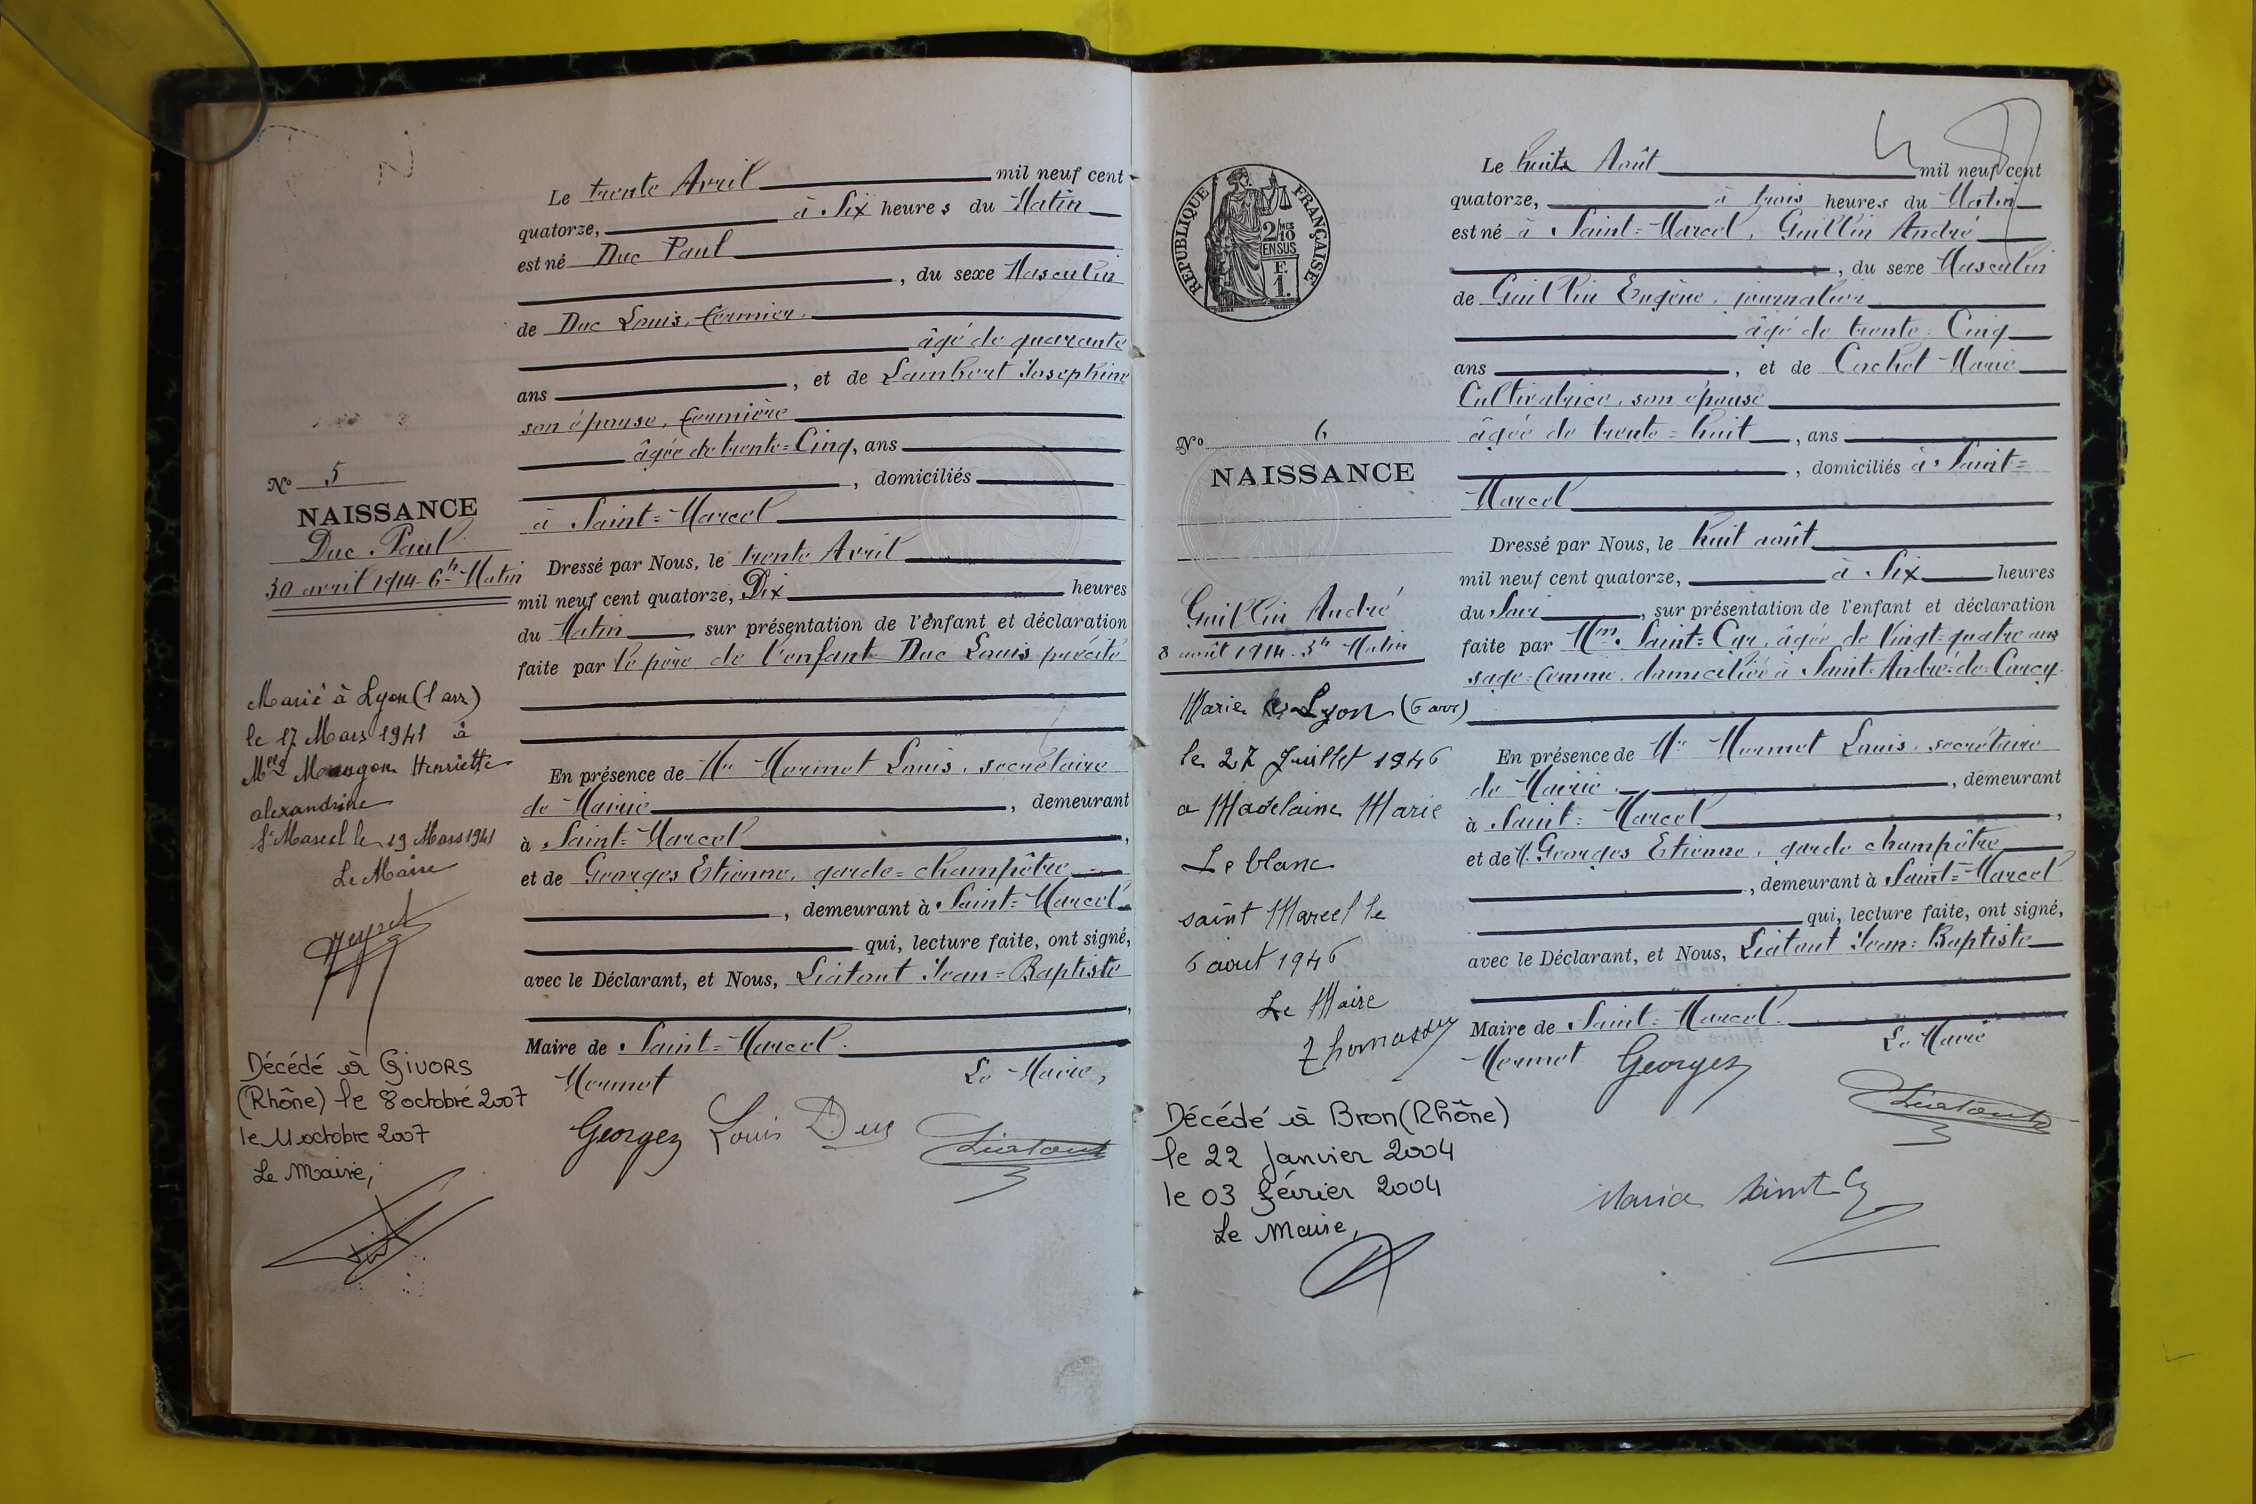 Nº 5
NAISSANCE
Duc Paul
30 avril 1914 6h Matin
Marié à Lyon (1 arr)
le 17 Mars 1941 à
Mlle Henriette
alexandrine
St Marcel le 19 Mars 1941
Le Maire
Décédé à GIVORS
(Rhône) le 8 octobre 2007
le 11 octobre 2007
Le Maire,
Le trente Avril mil neuf cent
quatorze, à Six heures du Matin
est né Duc Paul
, du sexe Masculin
de Duc Louis, fermier,
âgé de quarante
ans , et de Lambert Joséphine
son épouse, fermière
âgée de trente=Cinq, ans
, domiciliés
à Saint=Marcel
Dressé par Nous, le trente Avril
mil neuf cent quatorze, Dix heures
du Matin , sur présentation de l'enfant et déclaration
faite par le père de l'enfant Duc Louis précité
En présence de Mr Mermet Louis, secrétaire
de Mairie , demeurant
à Saint=Marcel ,
et de Georges Etienne, garde=champêtre
, demeurant à Saint=Marcel
qui, lecture faite, ont signé,
avec le Déclarant, et Nous, Liatout Jean=Baptiste
,
Maire de Saint=Marcel.
Mermet Le Maire,
Georges Louis Duc Liatout
4
RÉPUBLIQUE FRANÇAISE
2/10 MES
EN SUS
F.
1.
Nº 6
NAISSANCE
Guillin André
8 août 1914. 3h Matin
Marie Lyon (6 arr)
le 27 Juillet 1946
a Madelaine Marie
Leblanc
saint Marcel le
6 aout 1946
Le Maire
Thomasson
Décédé à Bron (Rhône)
le 22 Janvier 2004
le 03 février 2004
Le Maire,
Le huit Août mil neuf cent
quatorze, à trois heures du Matin
est né à Saint=Marcel, Guillin André
, du sexe Masculin
de Guillin Eugène, journalier
âgé de trente=Cinq
ans , et de Cachet Marie
Cultivatrice, son épouse
âgée de trente=huit , ans
, domiciliés à Saint=
Marcel
Dressé par Nous, le huit août
mil neuf cent quatorze, à Six heures
du Soir , sur présentation de l'enfant et déclaration
faite par Mme Saint=Cyr, âgée de Vingt=quatre ans
sage=femme, domiciliée à Saint=André=de=Corcy
En présence de Mr Mermet Louis, secrétaire
de Mairie , demeurant
à Saint=Marcel ,
et de M. Georges Etienne, garde champêtre
, demeurant à Saint=Marcel
qui, lecture faite, ont signé,
avec le Déclarant, et Nous, Liatout Jean=Baptiste
Maire de Saint=Marcel.
Mermet Georges Le Maire
Liatout
Maria Saint-Cyr